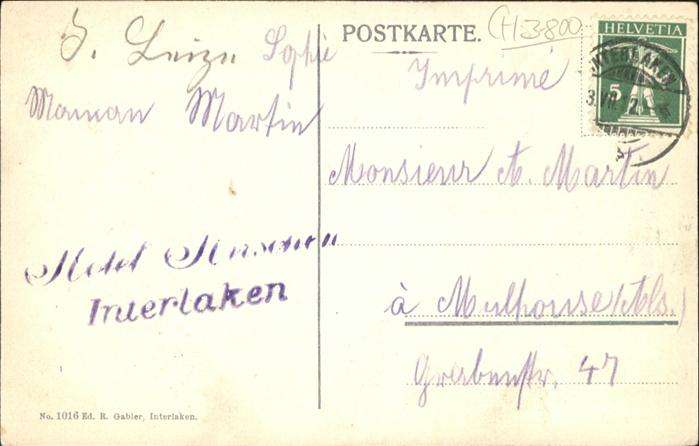 POSTKARTE.
(H) 3-800
HELVETIA
5
INTERLAKEN
J. Luize Sophie
Imprimé
Maman Martin
Monsieur A. Martin
Hotel
Interlaken
à Mulhouse/Als.
Grabenstr. 47
No. 1016 Ed. R. Gabler, Interlaken.